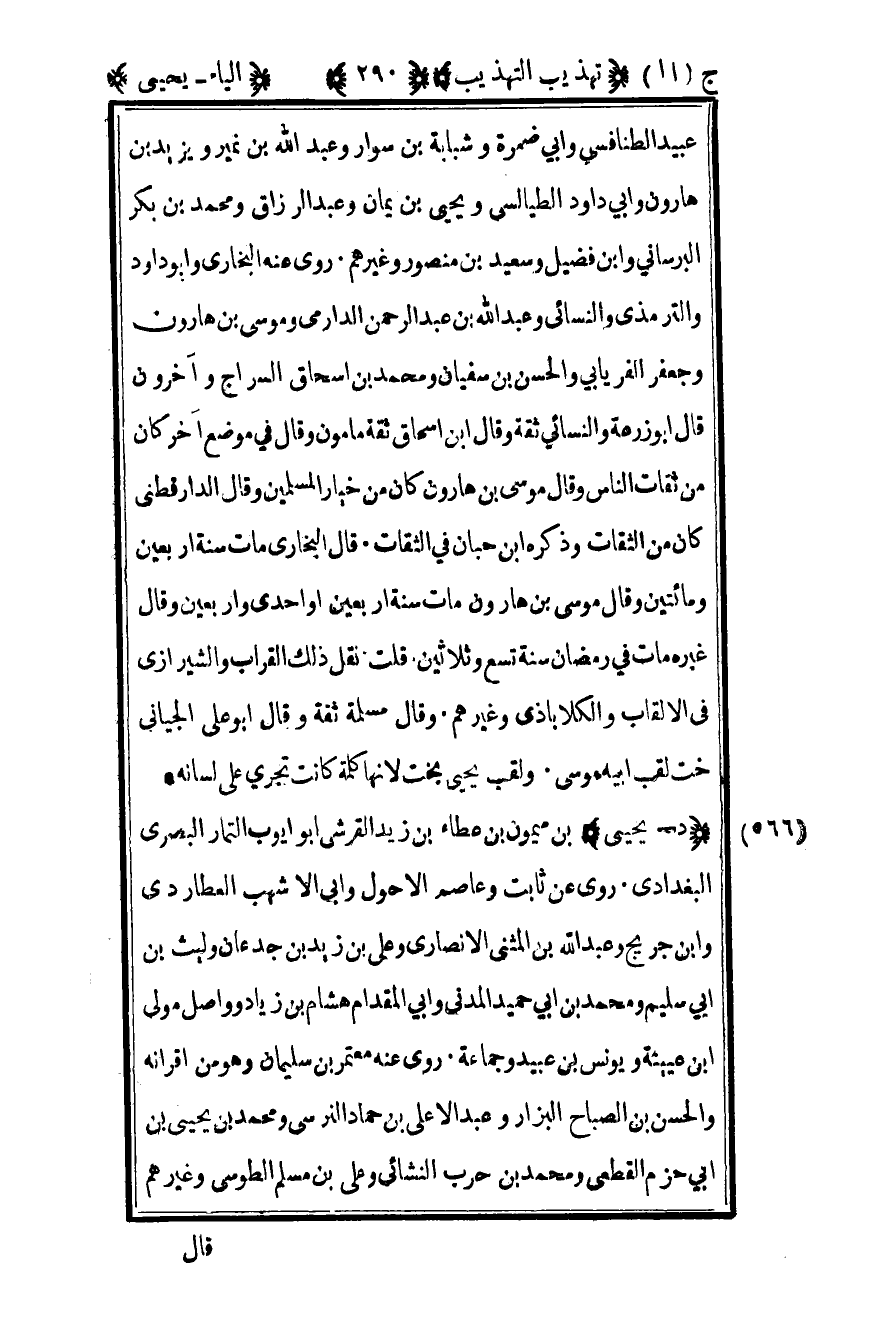 ج (١١) ﴿ تهذيب التهذيب ﴾ ﴿ ٢٩٠ ﴾ ﴿ الياء ـ يحيى ﴾
عبيد الطنافسي وابي ضمرة و شبابة بن سوار وعبد الله بن نمير و يزيد بن
هارون وابي داود الطيالسي و يحيى بن يمان وعبد الرزاق ومحمد بن بكر
البرساني وابن فضيل وسعيد بن منصور وغيرهم ٠ روى عنه البخارى وابو داود
والترمذى والنسائى وعبد الله بن عبد الرحمن الدارمى وموسى بن هارون
وجعفر الفريابي والحسن بن سفيان ومحمد بن اسحاق السراج و آخرون
قال ابو زرعة والنسائي ثقة وقال ابن اسحاق ثقة مامون وقال في موضع آخر كان
من ثقات الناس وقال موسى بن هارون كان من خيار المسلمين وقال الدارقطنى
كان من الثقات وذكره ابن حبان في الثقات ٠ قال البخارى مات سنة اربعين
ومائتين وقال موسى بن هارون مات سنة اربعين او احدى واربعين وقال
غيره مات في رمضان سنة تسع وثلاثين ٠ قلت ٠ نقل ذلك القراب والشيرازى
فى الالقاب والكلاباذى وغيرهم ٠ وقال مسلمة ثقة و قال ابو على الجيانى
خت لقب ابيه موسى ٠ ولقب يحيى بخت لانها كلمة كانت تجري على لسانه •
(٥٦٦) ﴿ د ـ يحيى ﴾ بن ميمون بن عطاء بن زيد القرشى ابو ايوب التمار البصرى
البغدادى ٠ روى عن ثابت وعاصم الاحول وابي الاشهب العطاردى
وابن جريج وعبد الله بن المثنى الانصارى وعلى بن زيد بن جدعان وليث بن
ابي سليم ومحمد بن ابي حميد المدنى وابي المقدام هشام بن زياد وواصل مولى
ابن عيينة و يونس بن عبيد وجماعة ٠ روى عنه معتمر بن سليمان وهو من اقرانه
والحسن بن الصباح البزار و عبد الاعلى بن حماد النرسى ومحمد بن يحيى بن
ابي حزم القطعى ومحمد بن حرب النشائى وعلى بن مسلم الطوسى وغيرهم
قال